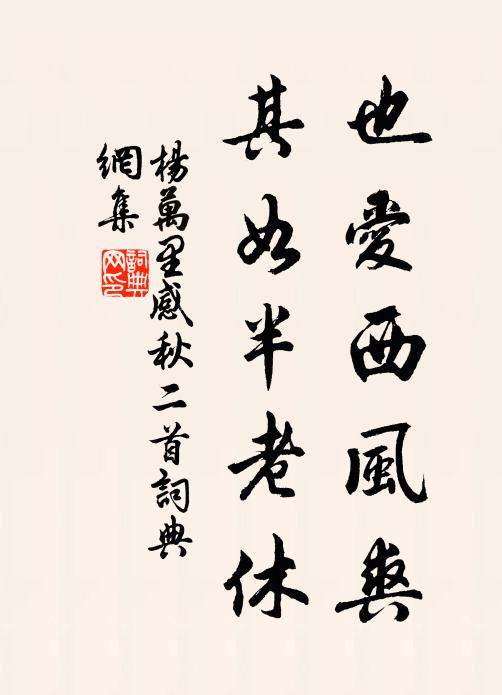 也愛西風爽
其如半老休
楊萬里感秋二首詞典
網集
詞典
网印